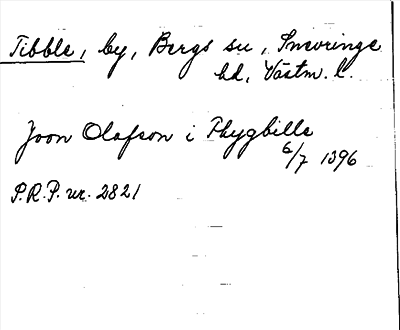 Tibble, by, Bergs sn, Snevringe
hd, Västm. l.
Joon Olafson i Thygbille
6/7 1396
P.R.P. nr. 2821